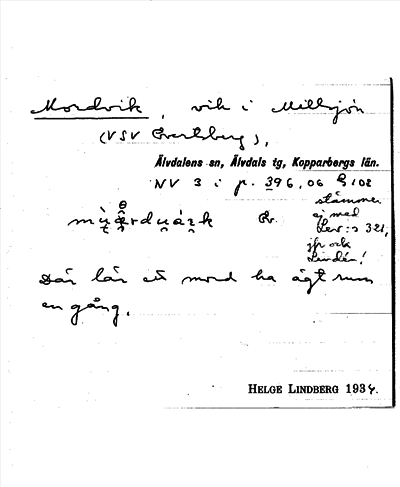 Mordvik, vik i Millsjön
(VSV Evertsberg),
Älvdalens sn, Älvdals tg, Kopparbergs län.
NV 3 i p. 396, 06 G 102
stämmer
ej med
Lev:s 321,
jfr och
Lindén!
Där lär ett mord ha ägt rum
en gång.
HELGE LINDBERG 1934.